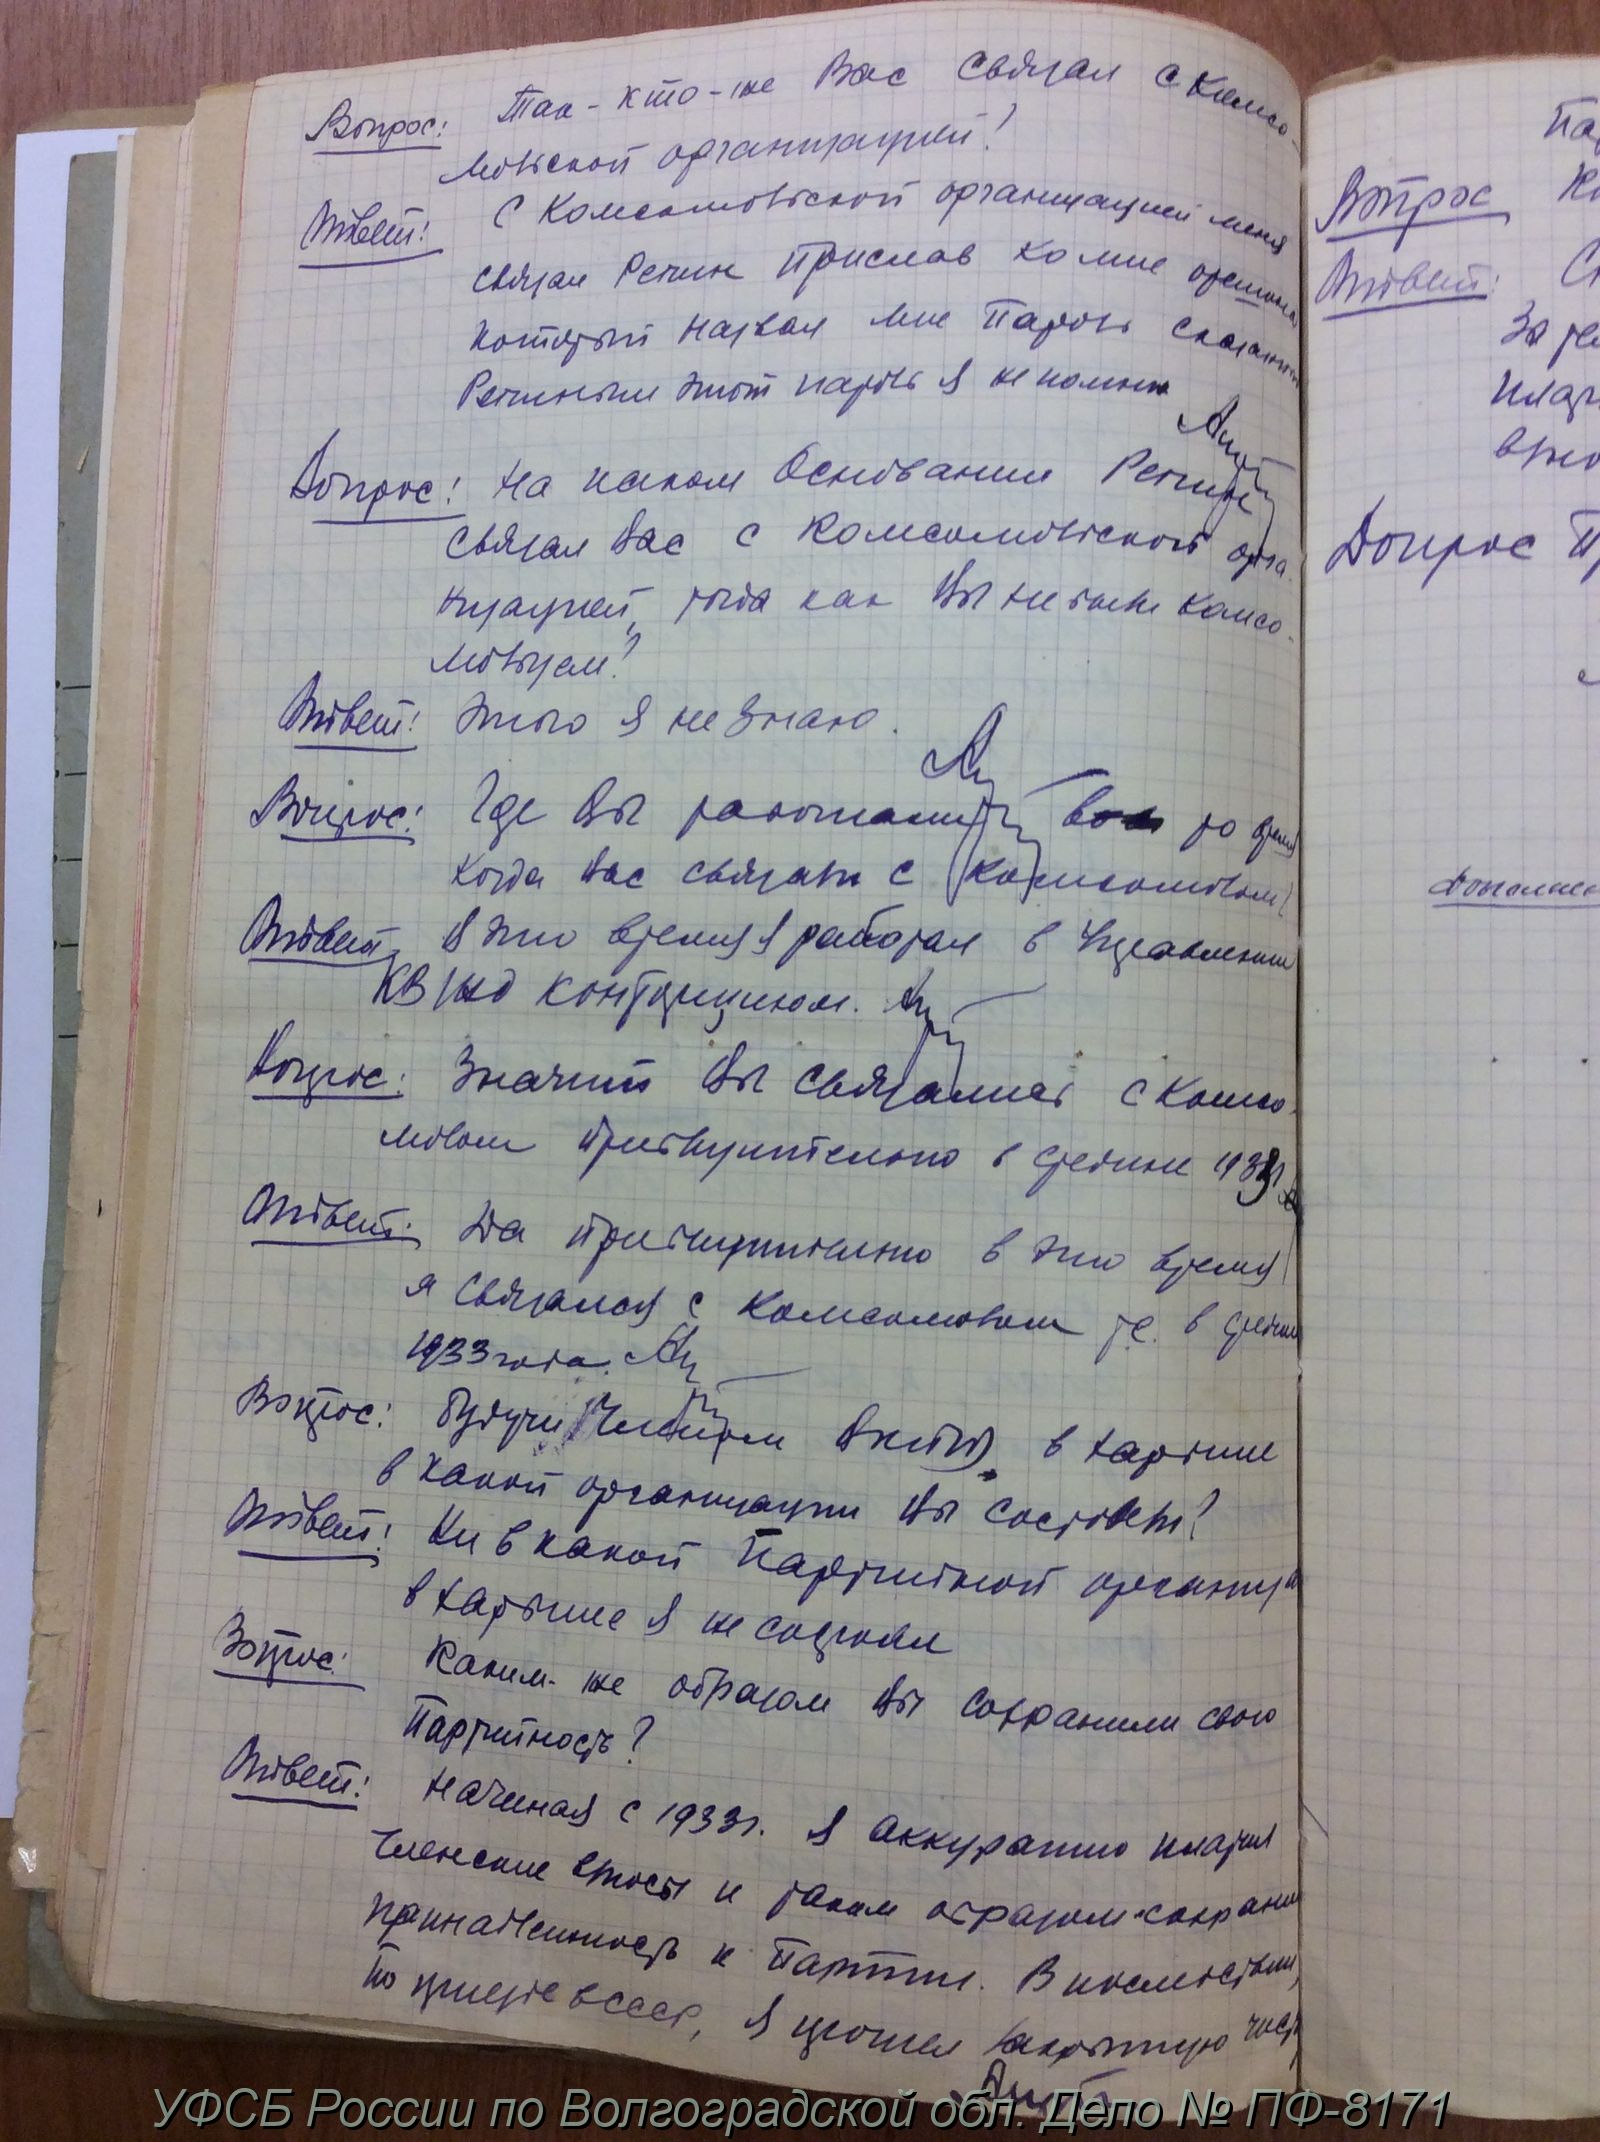 Вопрос: Так-кто-же Вас связал с Комсо-
мольской организацией?
Ответ: С Комсомольской организацией меня
связал Репин прислав ко мне
который назвал мне пароль сказанный
Репиным этот пароль я не помню
Вопрос: На каком основании Репин
связал Вас с Комсомольской орга-
низацией, тогда как Вы не были комсо-
мольцем?
Ответ: Этого я не знаю.
Вопрос: Где Вы работали во то время
когда Вас связали с Комсомолом?
Ответ В это время я работал в Управлении
КВЖД конторщиком.
Вопрос: Значит Вы связались с Комсо-
молом приблизительно в средине 1933г.
Ответ: Да приблизительно в это время
я связался с Комсомолом т.е. в средине
1933 года.
Вопрос: Будучи членом ВКП(б) в Харбине
в какой организации Вы состояли?
Ответ: Ни в какой партийной организац
в Харбине я не состоял
Вопрос: Каким-же образом Вы сохранили свою
партийность?
Ответ: Начиная с 1933г. я аккуратно платил
членские взносы и таким образом сохранил
принадлежность к партии. В последствии,
по приезде в СССР, я прошел закрытую
Па
Вопрос
Ответ: С
Вопрос
УФСБ России по Волгоградской обл. Дело № ПФ-8171